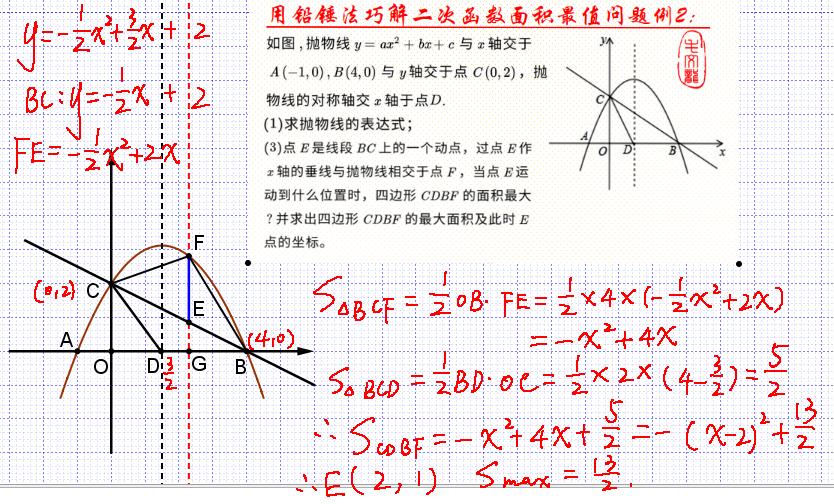 用铅锤法巧解二次函数面积最值问题例2:
如图,抛物线 y = ax² + bx + c 与 x 轴交于
A(-1,0),B(4,0) 与 y 轴交于点 C(0,2),抛
物线的对称轴交 x 轴于点D.
(1)求抛物线的表达式;
(3)点 E 是线段 BC 上的一个动点,过点 E 作
x 轴的垂线与抛物线相交于点 F,当点 E 运
动到什么位置时,四边形 CDBF 的面积最大
?并求出四边形 CDBF 的最大面积及此时 E
点的坐标。
y
C
A
O
D
B
x
y=-1/2x²+3/2x+2
BC:y=-1/2x+2
FE=-1/2x²+2x
F
(0,2)
C
E
(4,0)
A
O
D
3/2
G
B
S△BCF=1/2OB·FE=1/2×4×(-1/2x²+2x)
=-x²+4x
S△BCD=1/2BD·OC=1/2×2×(4-3/2)=5/2
∴SCDBF=-x²+4x+5/2=-(x-2)²+13/2
∴E(2,1) Smax=13/2.